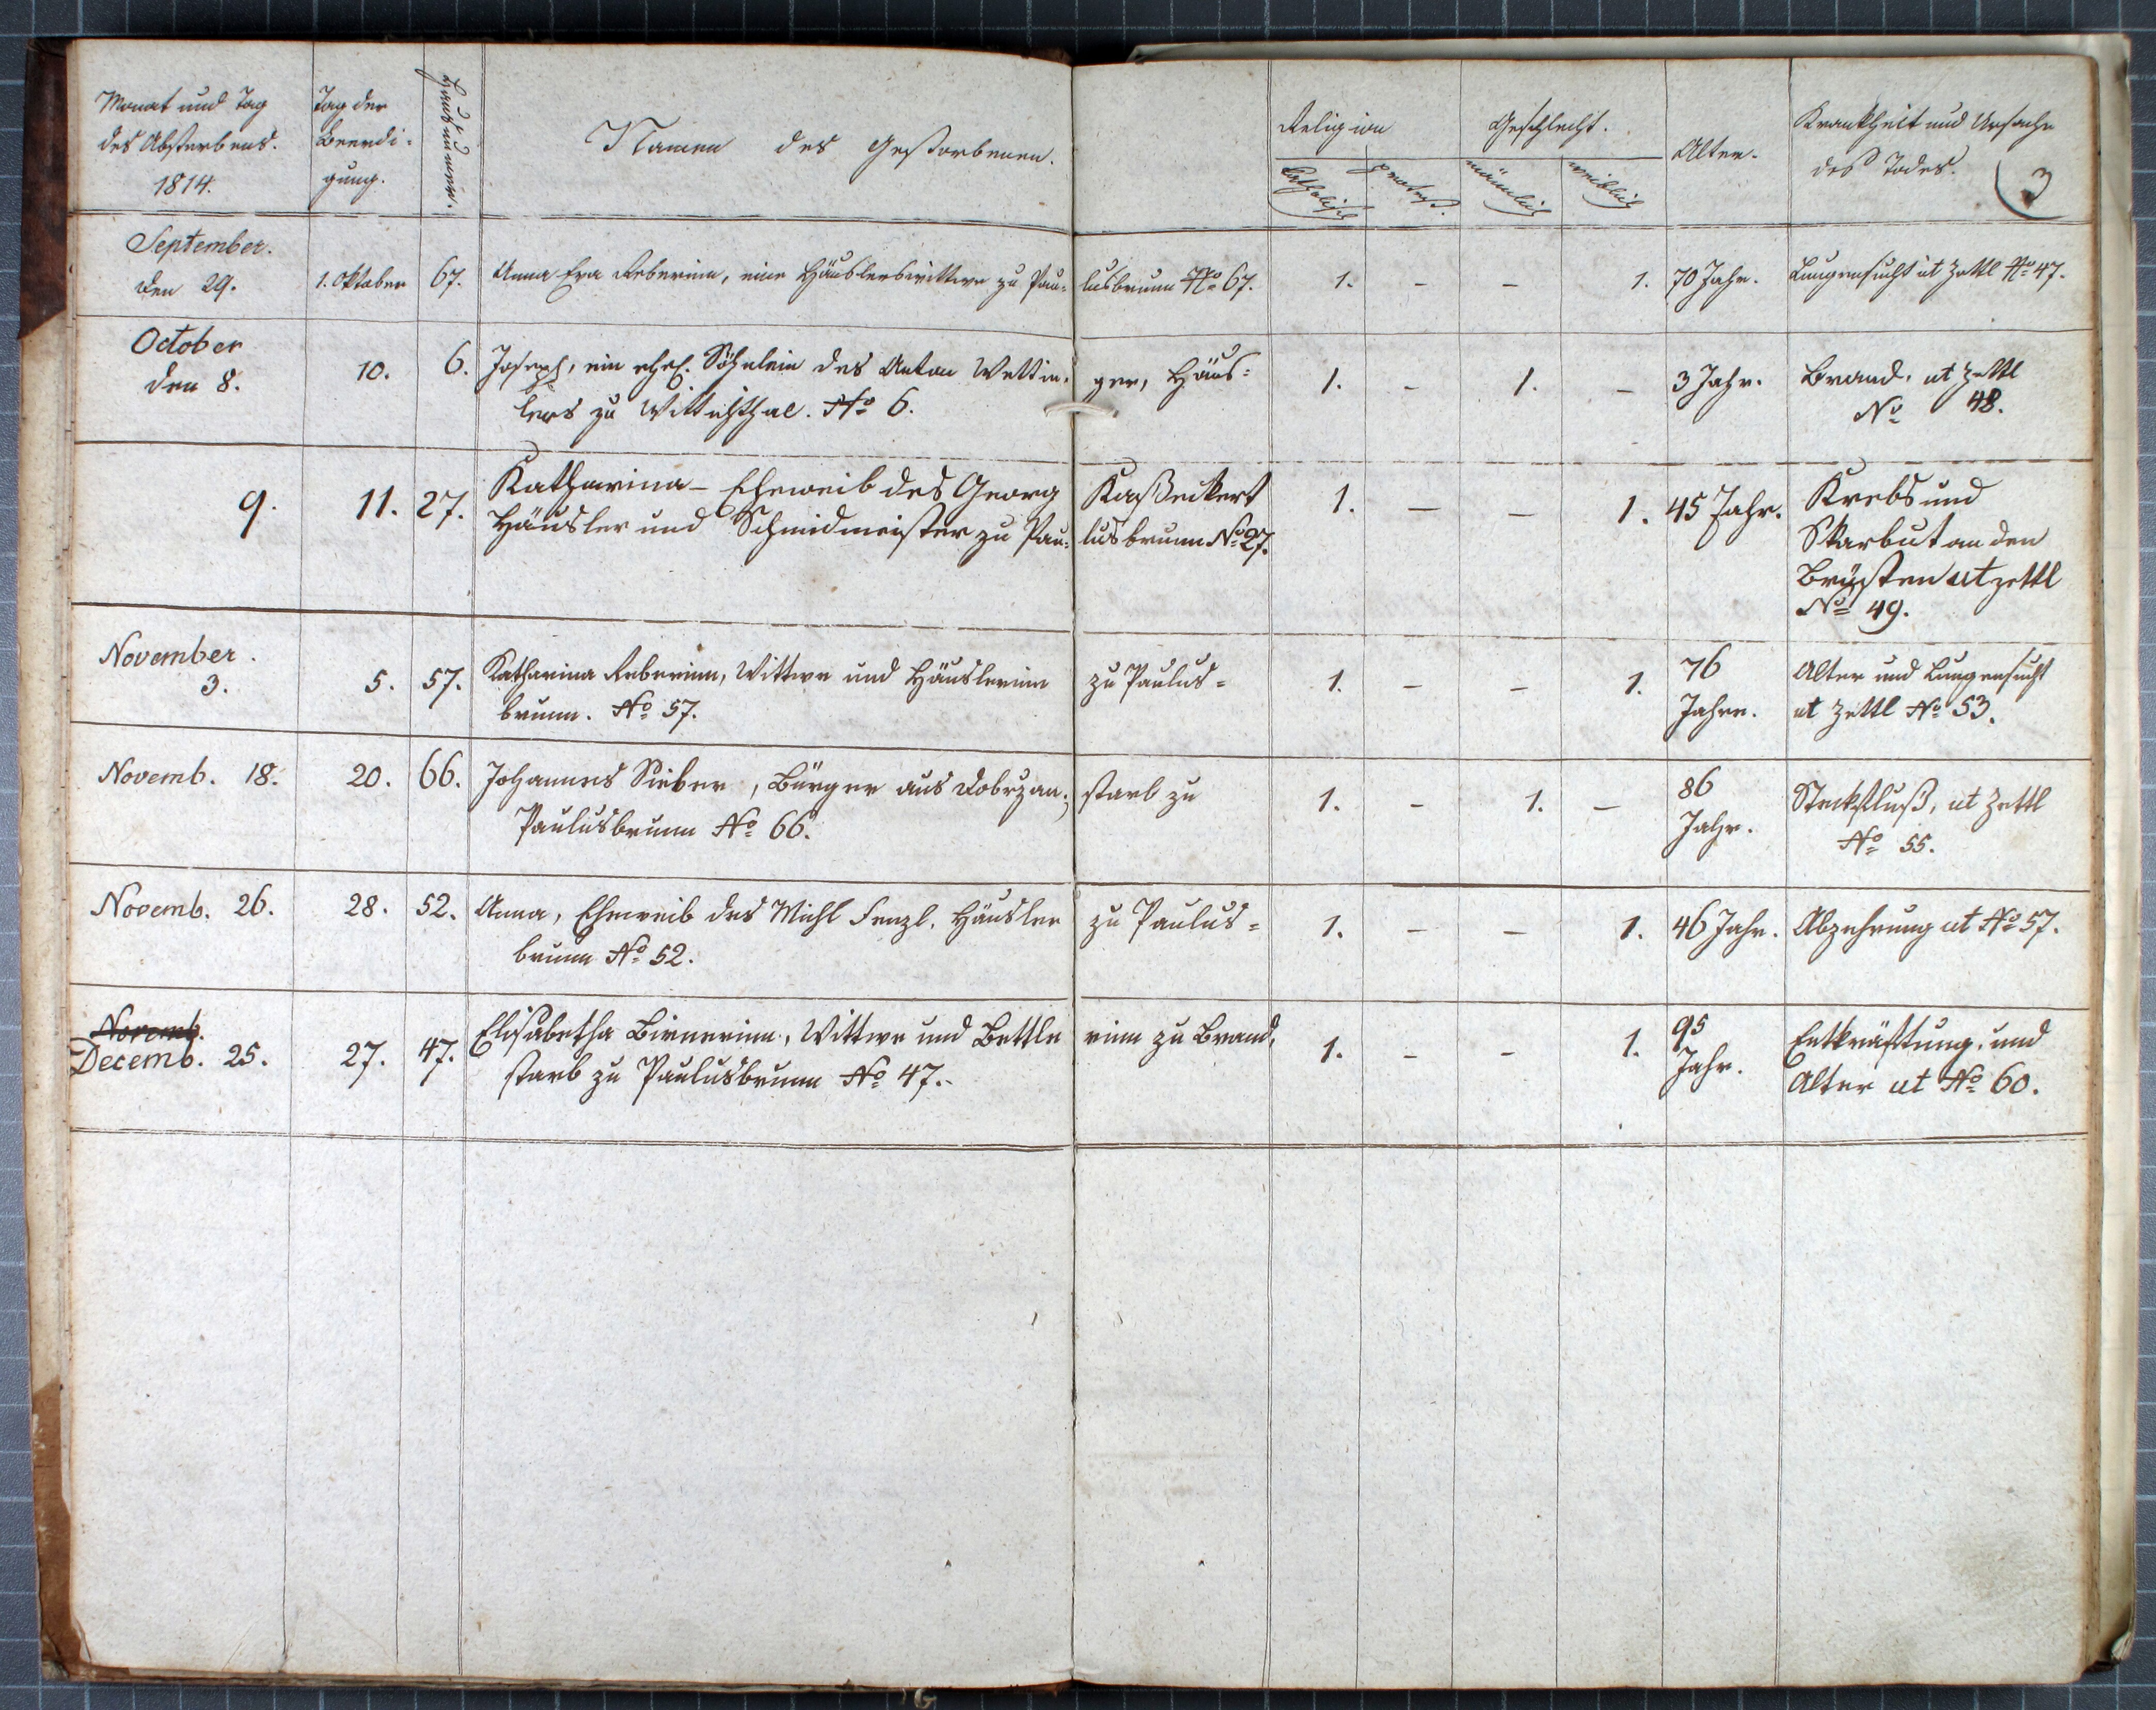 Monat und Tag
des Absterbens.
1814.
Tag der
Beerdi-
gung.
Hausnummer.
Namen des Gestorbenen.
Religion
katholisch
protest.
Geschlecht.
männlich
weiblich
Alter.
Krankheit und Ursache
des Todes.
3
September.
den 29. 1. Oktober 67. Anna Eva Reberinn, eine Häuslerswittwe zu Pau- lusbrunn No 67. 1. - - 1. 70 Jahr. Lungensucht ut Zettl No 47.
October
den 8. 10. 6. Joseph, ein ehel. Söhnlein des Anton Wettin- ger, Häus= 1. - 1. - 3 Jahr. Brand. ut Zettl
lers zu Wittichsthal. No 6. No 48.
9. 11. 27. Katharina - Eheweib des Georg Kaßeckert 1. - - 1. 45 Jahr. Krebs und
Häusler und Schmidmeister zu Pau- lusbrunn No 27. Skarbut an den
Brüsten ut zettl
No 49.
November.
3. 5. 57. Katharina Reberinn, Wittwe und Häuslerinn zu Paulus= 1. - - 1. 76 Alter und Lungensucht
brunn. No 57. Jahre. ut Zettl No 53.
Novemb. 18. 20. 66. Johannes Sieber, Bürger aus Dobrzan; starb zu 1. - 1. - 86 Steckfluß, ut Zettl
Paulusbrunn No 66. Jahr. No 55.
Novemb. 26. 28. 52. Anna, Eheweib des Michl Fenzl. Häusler zu Paulus= 1. - - 1. 46 Jahr. Abzehrung ut No 57.
brunn No 52.
Novemb.
Decemb. 25. 27. 47. Elisabetha Birnerinn, Wittwe und Bettle rinn zu Brand, 1. - - 1. 95 Entkräftung, und
starb zu Paulusbrunn No 47. Jahr. Alter ut No 60.